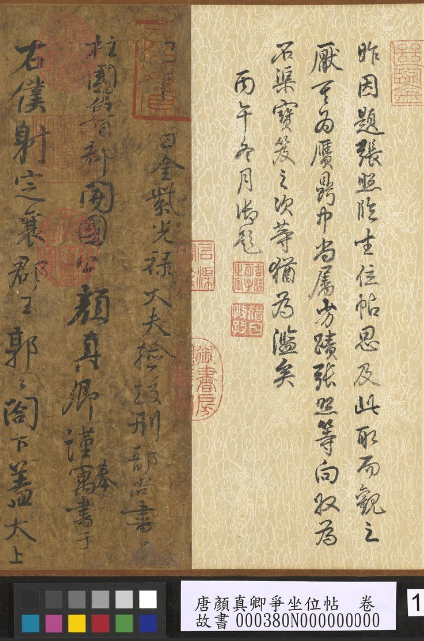 昨因題張照臨坐位帖思及此取而觀之
厭其為贋鼎中尚屬劣蹟張照等向收為
石渠寶笈之次等猶為濫矣
丙午冬月御題
日金紫光祿大夫檢校刑部尚書
柱國魯郡開國公顏真卿謹奉寓書于
右僕射定襄郡王郭之閤下蓋太上
唐顏真卿爭坐位帖 卷
故書 000380N000000000
1